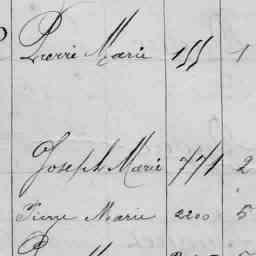 Pierre Marie 155 1
Joseph Marie 771 2
Pierre Marie 2200 5